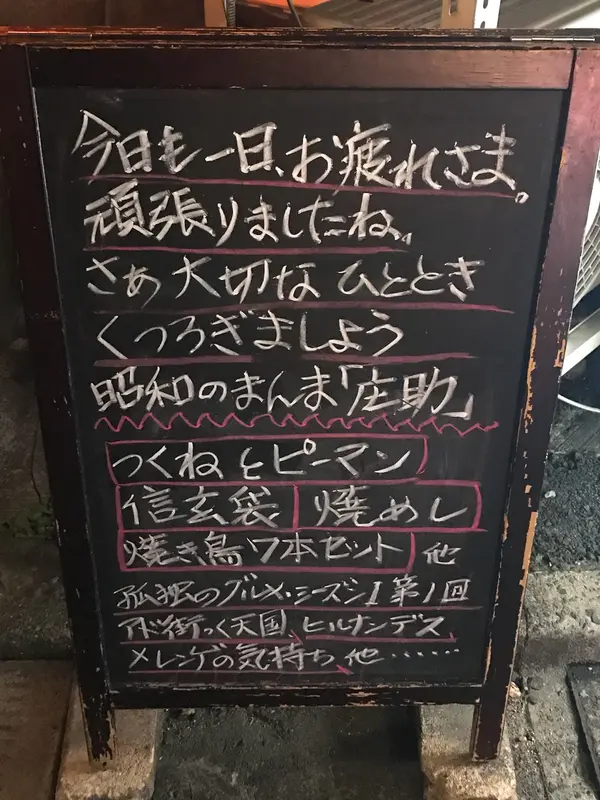 今日も一日、お疲れさま。
頑張りましたね。
さぁ大切なひととき
くつろぎましょう
昭和のまんま「庄助」
つくねとピーマン
信玄袋 焼めし
焼き鳥7本セット 他
孤独のグルメ・シーズン1第1回
アド街っく天国、ヒルナンデス、
メレンゲの気持ち、他……